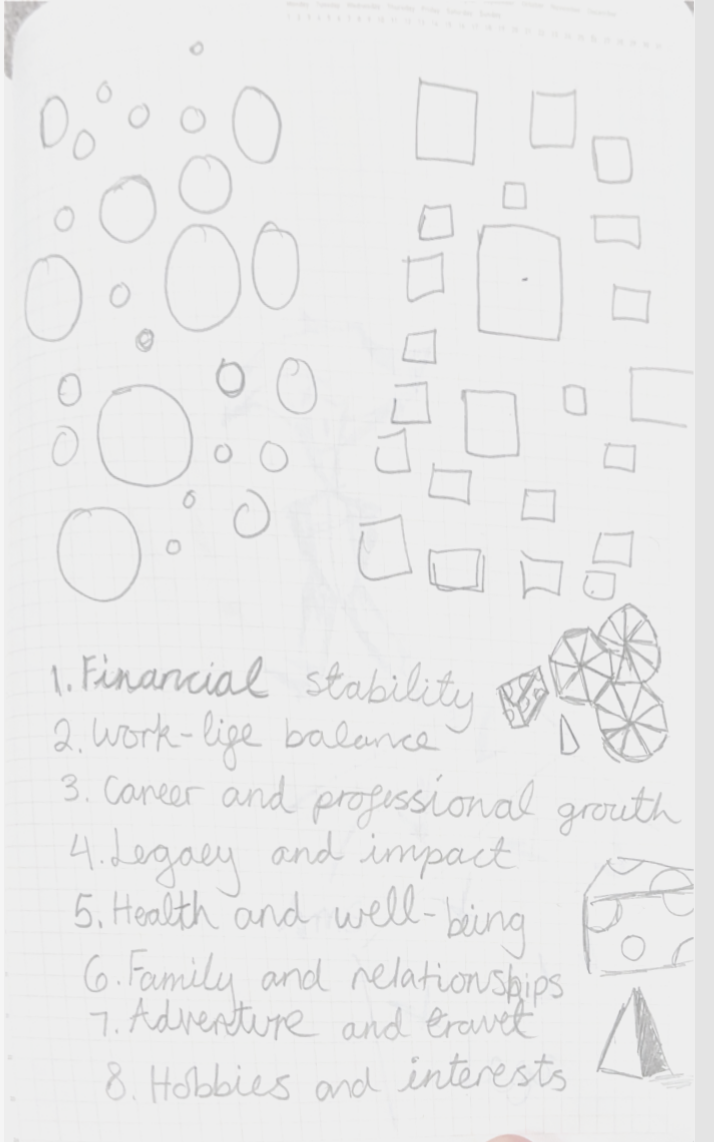 1. Financial stability
2. Work-life balance
3. Career and professional growth
4. Legacy and impact
5. Health and well-being
6. Family and relationships
7. Adventure and travel
8. Hobbies and interests